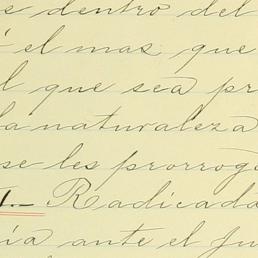 e dentro del
el mas que
l que sea pr
la naturaleza
se les prorrog
1.— Radicada
ía ante el Ju